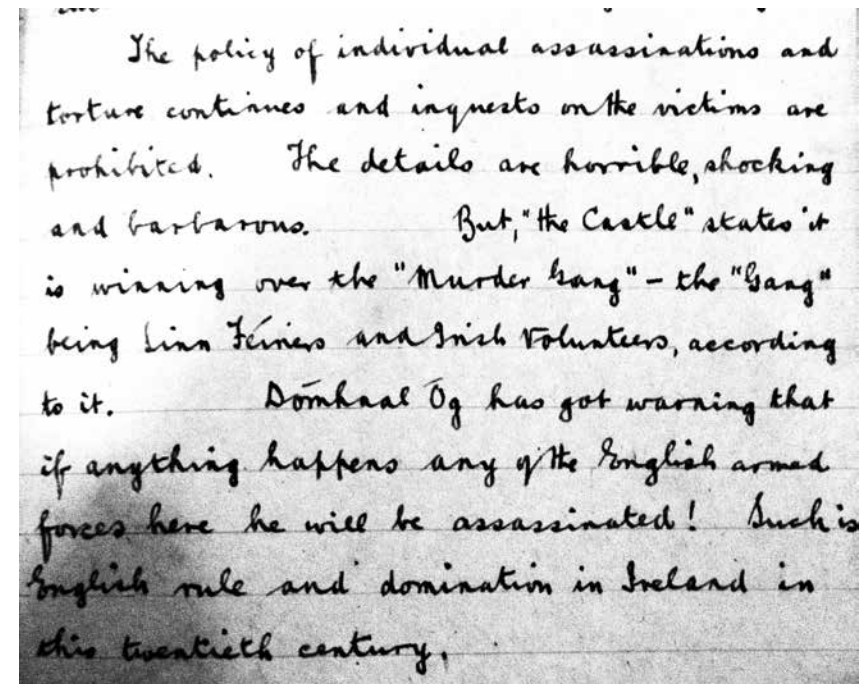 The policy of individual assassinations and
torture continues and inquests on the victims are
prohibited. The details are horrible, shocking
and barbarous. But, "the Castle" states it
is winning over the "Murder Gang" – the "Gang"
being Sinn Féiners and Irish Volunteers, according
to it. Dómhnal Óg has got warning that
if anything happens any of the English armed
forces here he will be assassinated! Such is
English rule and domination in Ireland in
this twentieth century.